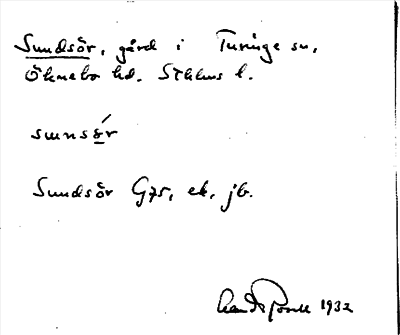 Sundsör, gård i Turinge sn,
Öknebo hd. Sthlms l.
sunsǿr
Sundsör G75, ek, jb.
1932